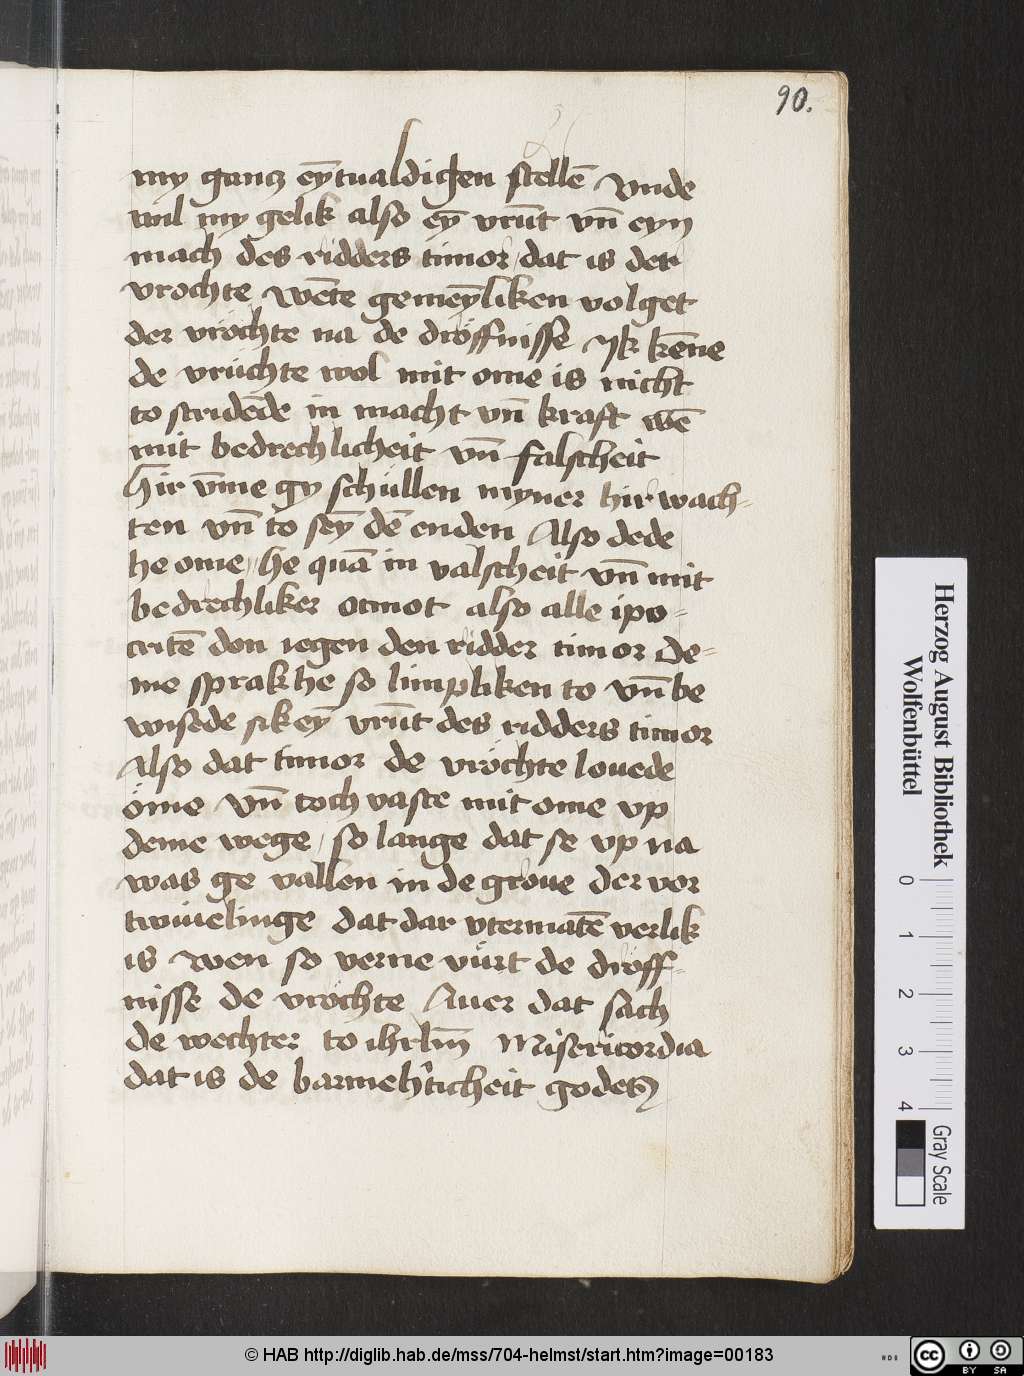 90.
my gancz eȳtualdigen stellē vnde
wil my gelik also eȳ vrūt vn̄ eyn
mach des ridders timor / dat is der
vrochte wēte gemeȳliken volget
der vröchte na de dröffnisse Jk kēne
de vrüchte wol mit ome is nicht
to stridēde in macht vn̄ kraft wē
mit bedrechlicheit vn̄ falscheit
Hir v̄me gy schüllen myner hir wach-
ten vn̄ to seȳ dē enden Also dede
he ome / he quā in valscheit vn̄ mit
bedrechliker otmot also alle ipo-
critē don iegen den ridder timor De-
me sprak he so limpliken to vn̄ be
wisede sik eȳ vrūt des ridders timor
Also dat timor de vröchte louede
öme vn̄ toch vaste mit ome vp
deme wege / so lange dat se vp na
was ge vallen in de groue der vor
twiuelinge dat dar vtermatē verlik
is wen so verne vürt de dröff-
nisse de vröchte Auer dat sach
de wechter to ihrlm̄ Misericordia
dat is de barmeh'ticheit godes
Herzog August Bibliothek
Wolfenbüttel
0 1 2 3 4
Gray Scale
© HAB http://diglib.hab.de/mss/704-helmst/start.htm?image=00183
HAB
cc BY SA